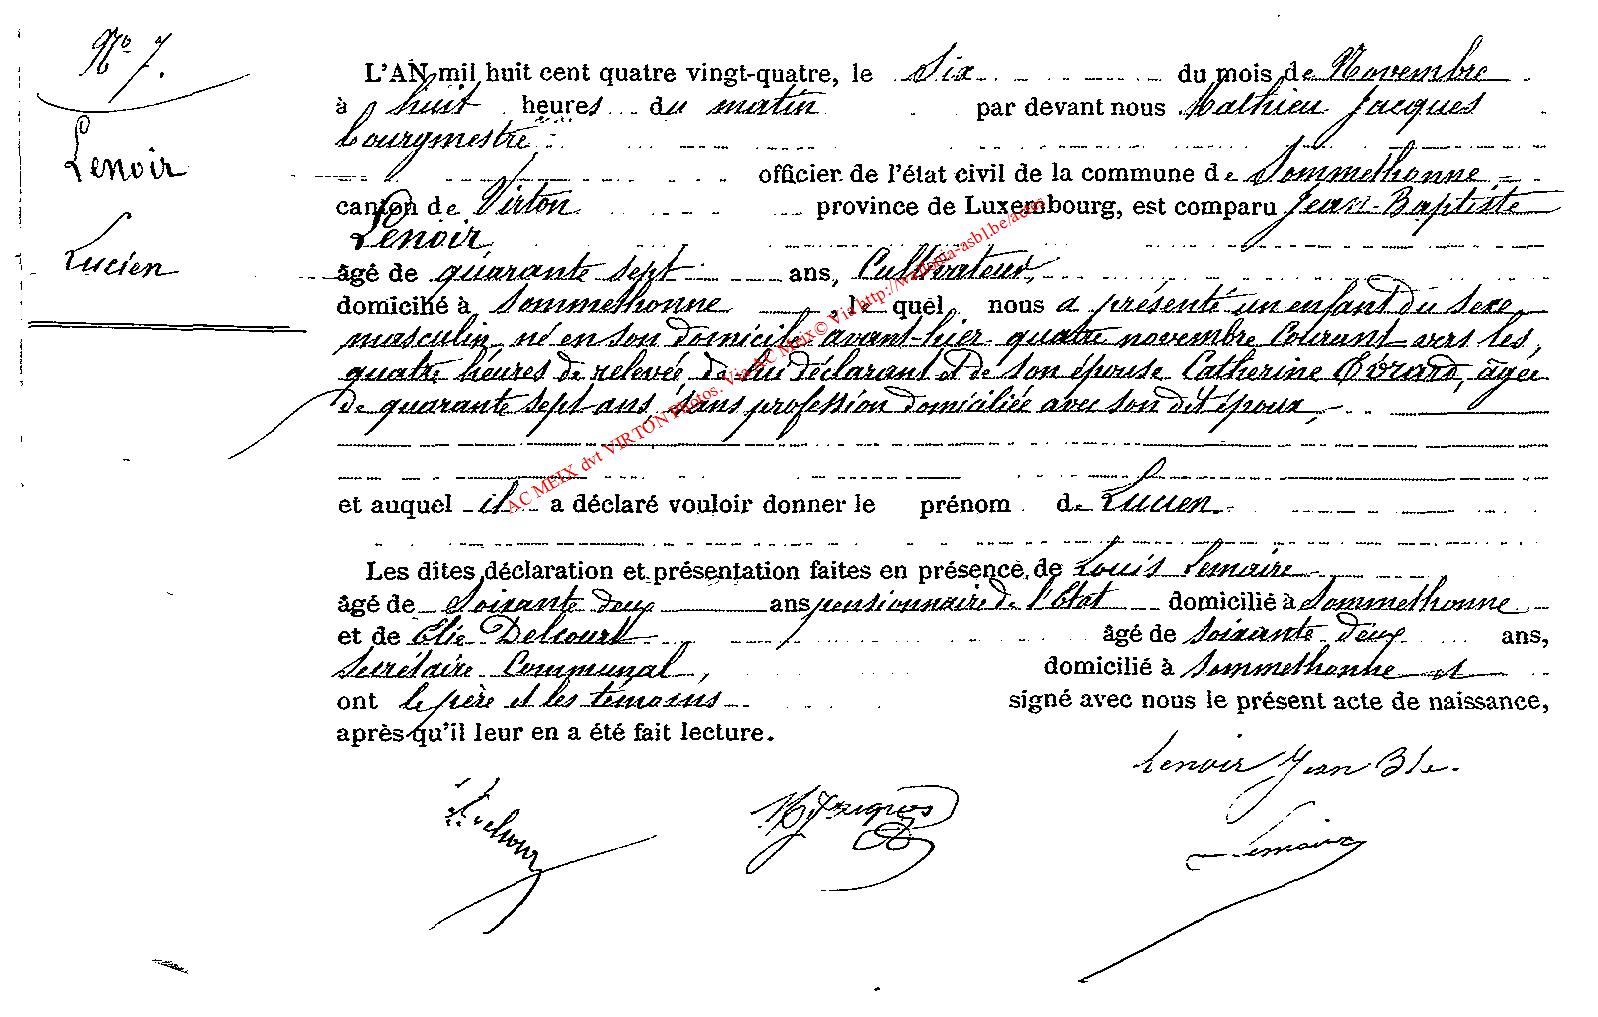 N° 7.
Lenoir
Lucien
L'AN mil huit cent quatre vingt-quatre, le Six du mois de Novembre
à huit heures du matin par devant nous Mathieu Jacques
bourgmestre
officier de l'état civil de la commune de Sommethonne
canton de Virton province de Luxembourg, est comparu Jean-Baptiste
Lenoir
âgé de quarante sept ans, Cultivateur,
domicilié à Sommethonne, le quel nous a présenté un enfant du sexe
masculin, né en son domicile avant-hier quatre novembre courant vers les
quatre heures de relevée, de lui déclarant et de son épouse Catherine Evrard, âgée
de quarante sept ans, sans profession domiciliée avec son dit époux,
et auquel il a déclaré vouloir donner le prénom de Lucien
Les dites déclaration et présentation faites en présence de Louis Lemaire
âgé de Soixante deux ans pensionnaire de l'Etat domicilié à Sommethonne
et de Elie Delcourt âgé de soixante deux ans,
Secrétaire Communal, domicilié à Sommethonne et
ont le père et les témoins signé avec nous le présent acte de naissance,
après qu'il leur en a été fait lecture.
Lenoir Jean Bte.
M Jacques
Lemaire
AC MEIX dvt VIRTON Photos. Via AC Meix© Via http://wallonia-asbl.be/actes